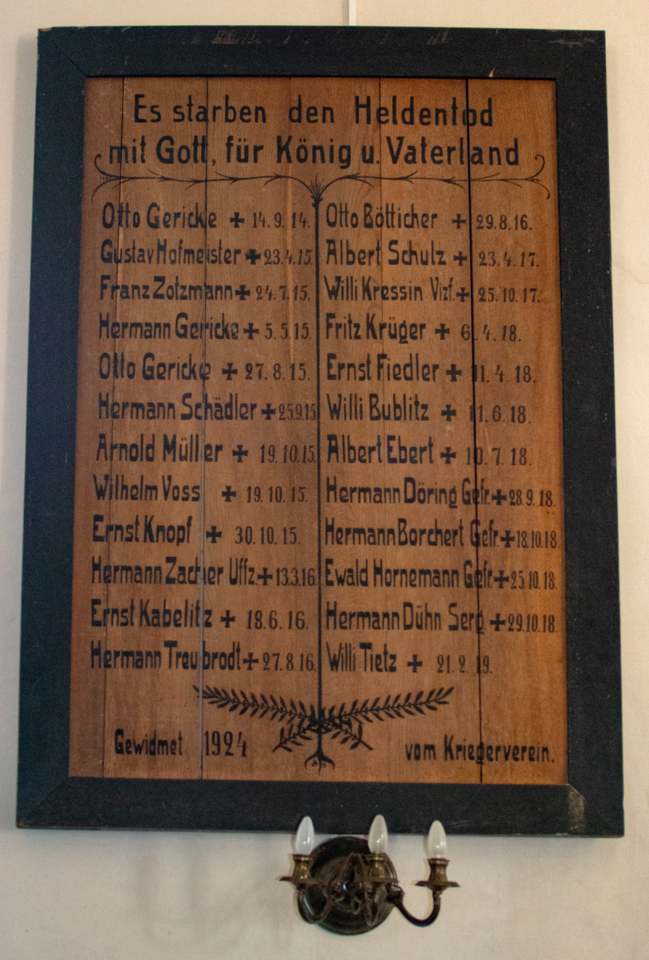 Es starben den Heldentod
mit Gott, für König u. Vaterland
Otto Gericke + 14.9.14.
Gustav Hofmeister + 23.4.15.
Franz Zotzmann + 24.7.15.
Hermann Gericke + 5.5.15.
Otto Gericke + 27.8.15.
Hermann Schädler + 25.9.15
Arnold Müller + 19.10.15.
Wilhelm Voss + 19.10.15.
Ernst Knopf + 30.10.15.
Hermann Zacher Uffz + 13.3.16
Ernst Kabelitz + 18.6.16.
Hermann Treubrodt + 27.8.16.
Otto Bötticher + 29.8.16.
Albert Schulz + 23.4.17.
Willi Kressin Vizf. + 25.10.17.
Fritz Krüger + 6.4.18.
Ernst Fiedler + 11.4.18.
Willi Bublitz + 11.6.18.
Albert Ebert + 10.7.18.
Hermann Döring Gefr. + 28.9.18.
Hermann Borchert Gefr. + 18.10.18.
Ewald Hornemann Gefr + 25.10.18.
Hermann Dühn Serg + 29.10.18
Willi Tietz + 21.2.19.
Gewidmet 1924 vom Kriegerverein.